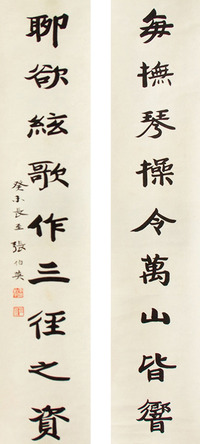 每撫琴操令萬山皆響
聊欲絃歌作三徑之資
癸未長至張伯英